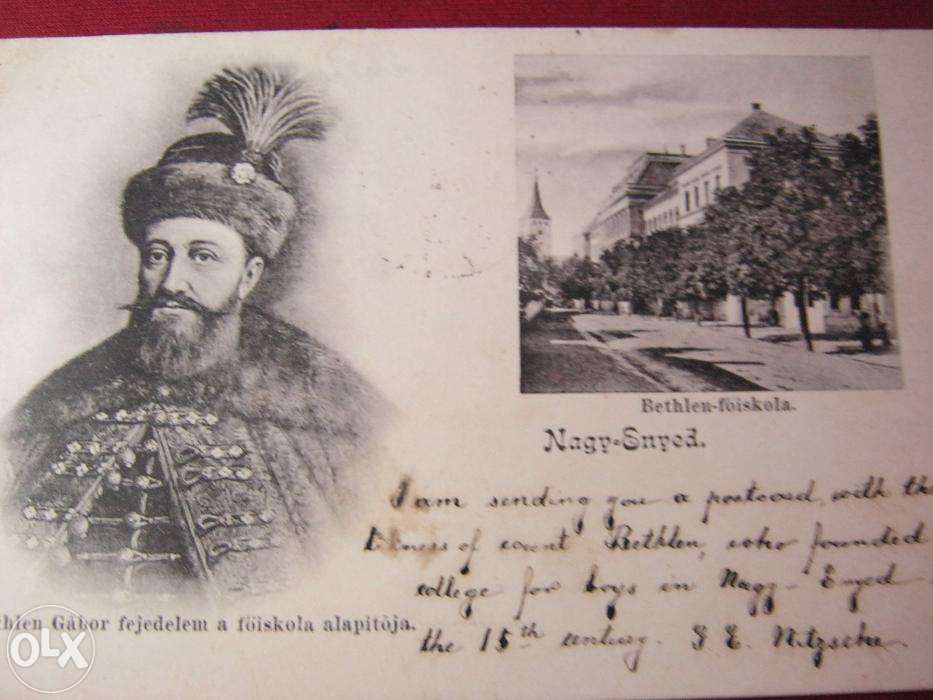 Bethlen-főiskola.
Nagy-Enyed.
I am sending you a postcard, with the
likness of count Bethlen, who founded
college for boys in Nagy-Enyed
the 15th century. G E.
thlen Gábor fejedelem a főiskola alapitója.
OLX